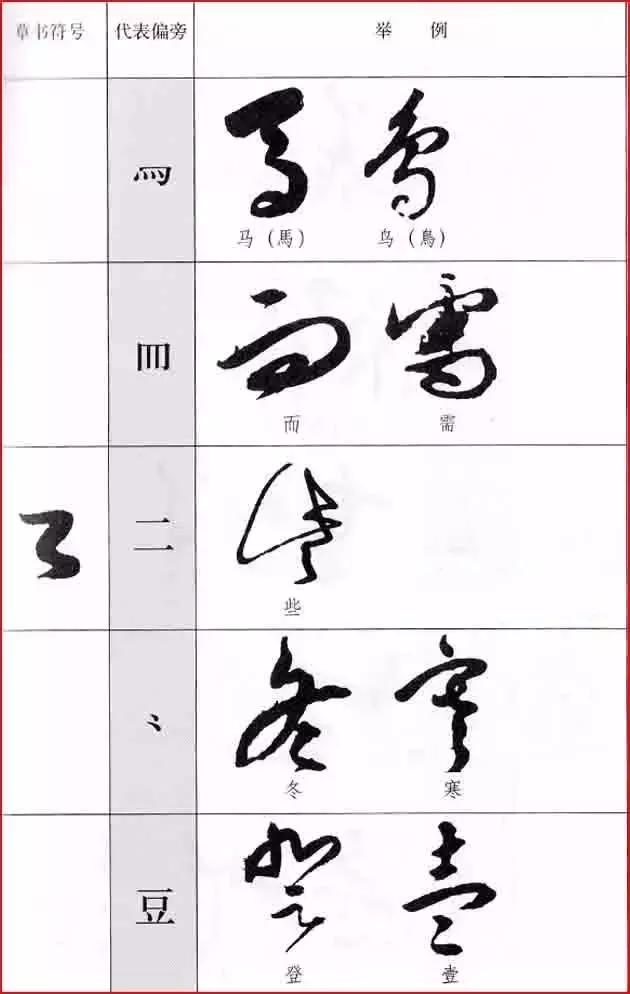 草书符号 代表偏旁 举例
马（馬） 鸟（鳥）
而 需
二
些
冬 寒
豆
登 壹